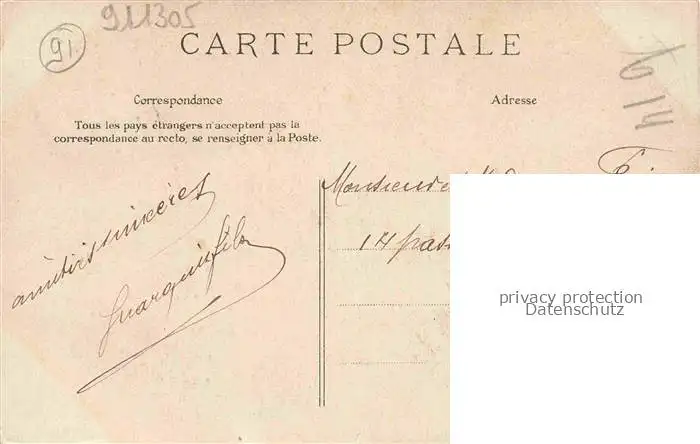 911305
91
CARTE POSTALE
Correspondance
Adresse
Tous les pays étrangers n'acceptent pas la
correspondance au recto, se renseigner à la Poste.
amitiés sincères
Monsieur et
14
privacy protection
Datenschutz